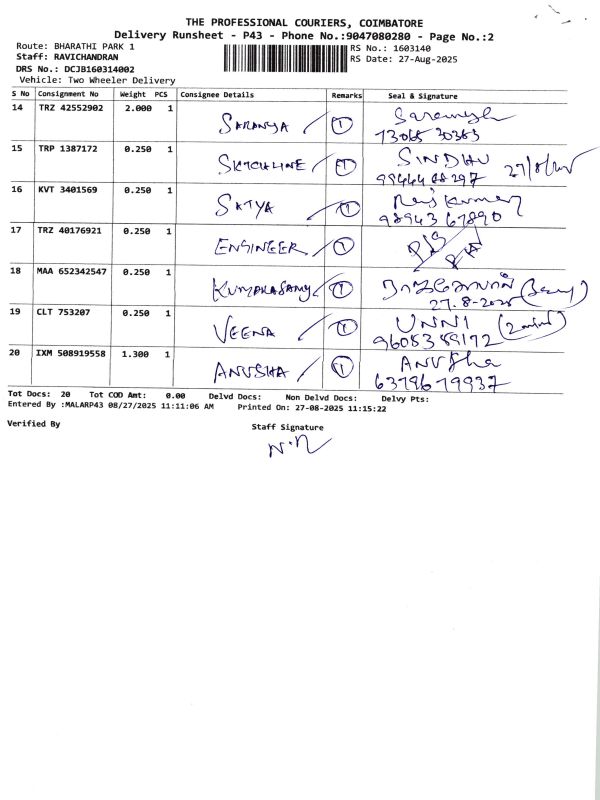 THE PROFESSIONAL COURIERS, COIMBATORE
Delivery Runsheet - P43 - Phone No.:9047080280 - Page No.:2
Route: BHARATHI PARK 1 RS No.: 1603140
Staff: RAVICHANDRAN RS Date: 27-Aug-2025
DRS No.: DCJB160314002
Vehicle: Two Wheeler Delivery
S No Consignment No Weight PCS Consignee Details Remarks Seal & Signature
14 TRZ 42552902 2.000 1 SARANYA 1
15 TRP 1387172 0.250 1 SKTCHLINE 1 SINDHU
27/8/
16 KVT 3401569 0.250 1 SATYA 1 Raj Kumar
98943 67890
17 TRZ 40176921 0.250 1 ENGINEER 1
18 MAA 652342547 0.250 1 KUMARASAMY 1
27.8-2025
19 CLT 753207 0.250 1 VEENA 1 UNNI
9605389172
20 IXM 508919558 1.300 1 ANUSHA 1 ANUSha
6379679937
Tot Docs: 20 Tot COD Amt: 0.00 Delvd Docs: Non Delvd Docs: Delvy Pts:
Entered By :MALARP43 08/27/2025 11:11:06 AM Printed On: 27-08-2025 11:15:22
Verified By Staff Signature